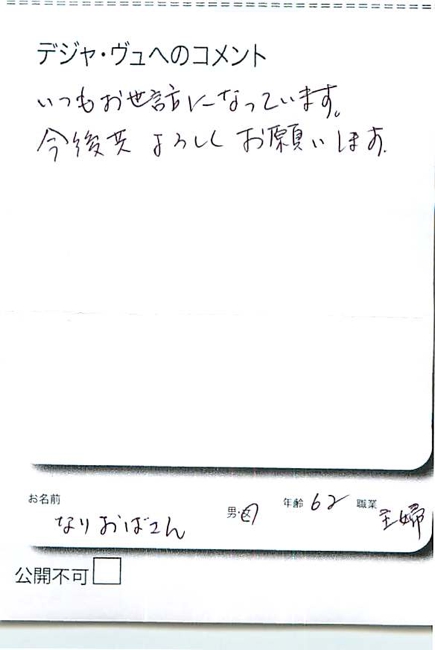 デジャ・ヴュへのコメント
いつもお世話になっています。
今後共 よろしく お願いします.
お名前 なりおばさん 男・女 年齢 62 職業 主婦
公開不可